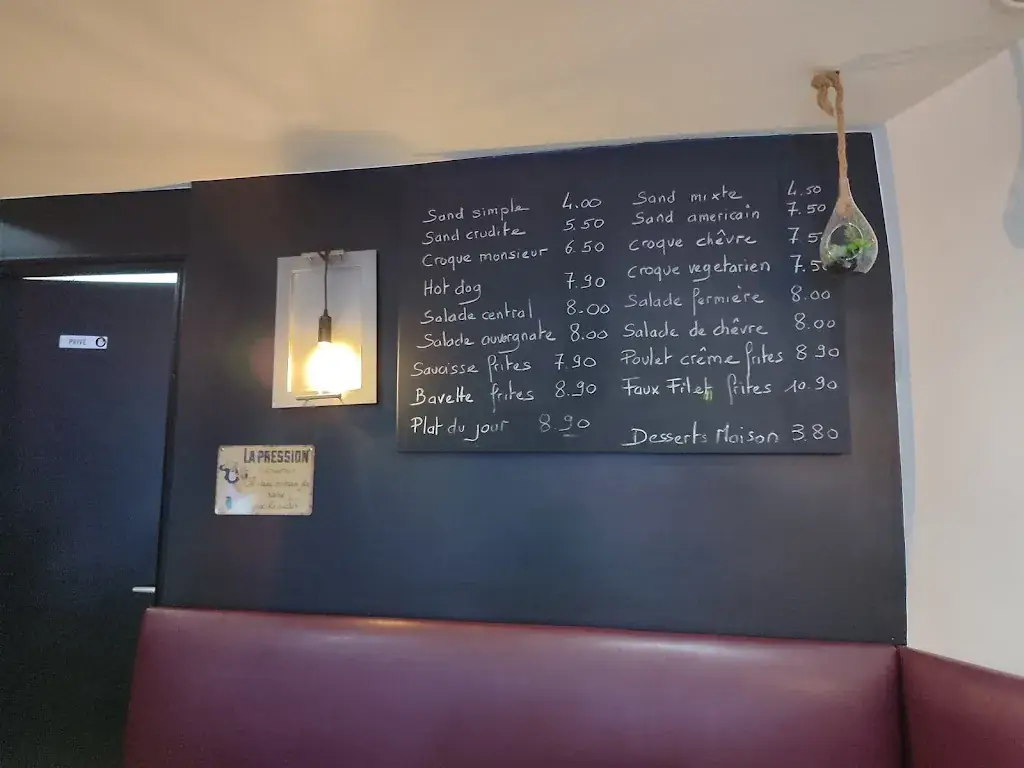 PRIVÉ
Sand simple 4.00
Sand crudite 5.50
Croque monsieur 6.50
Hot dog 7.90
Salade central 8.00
Salade auvergnate 8.00
Saucisse frites 7.90
Bavette frites 8.90
Plat du jour 8.90
Sand mixte 4.50
Sand americain 7.50
Croque chêvre 7.5
Croque vegetarien 7.5
Salade fermière 8.00
Salade de chêvre 8.00
Poulet crême frites 8.90
Faux Filet frites 10.90
Desserts Maison 3.80
LA PRESSION